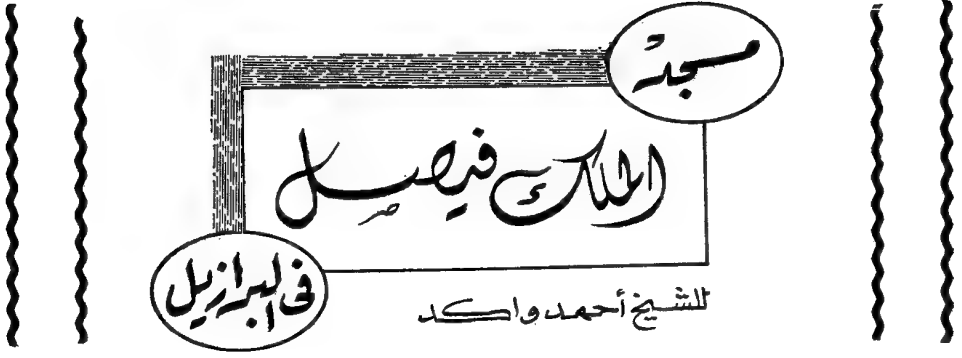 مسجد
الملك فيصل
فى البرازيل
للشيخ أحمد واكد